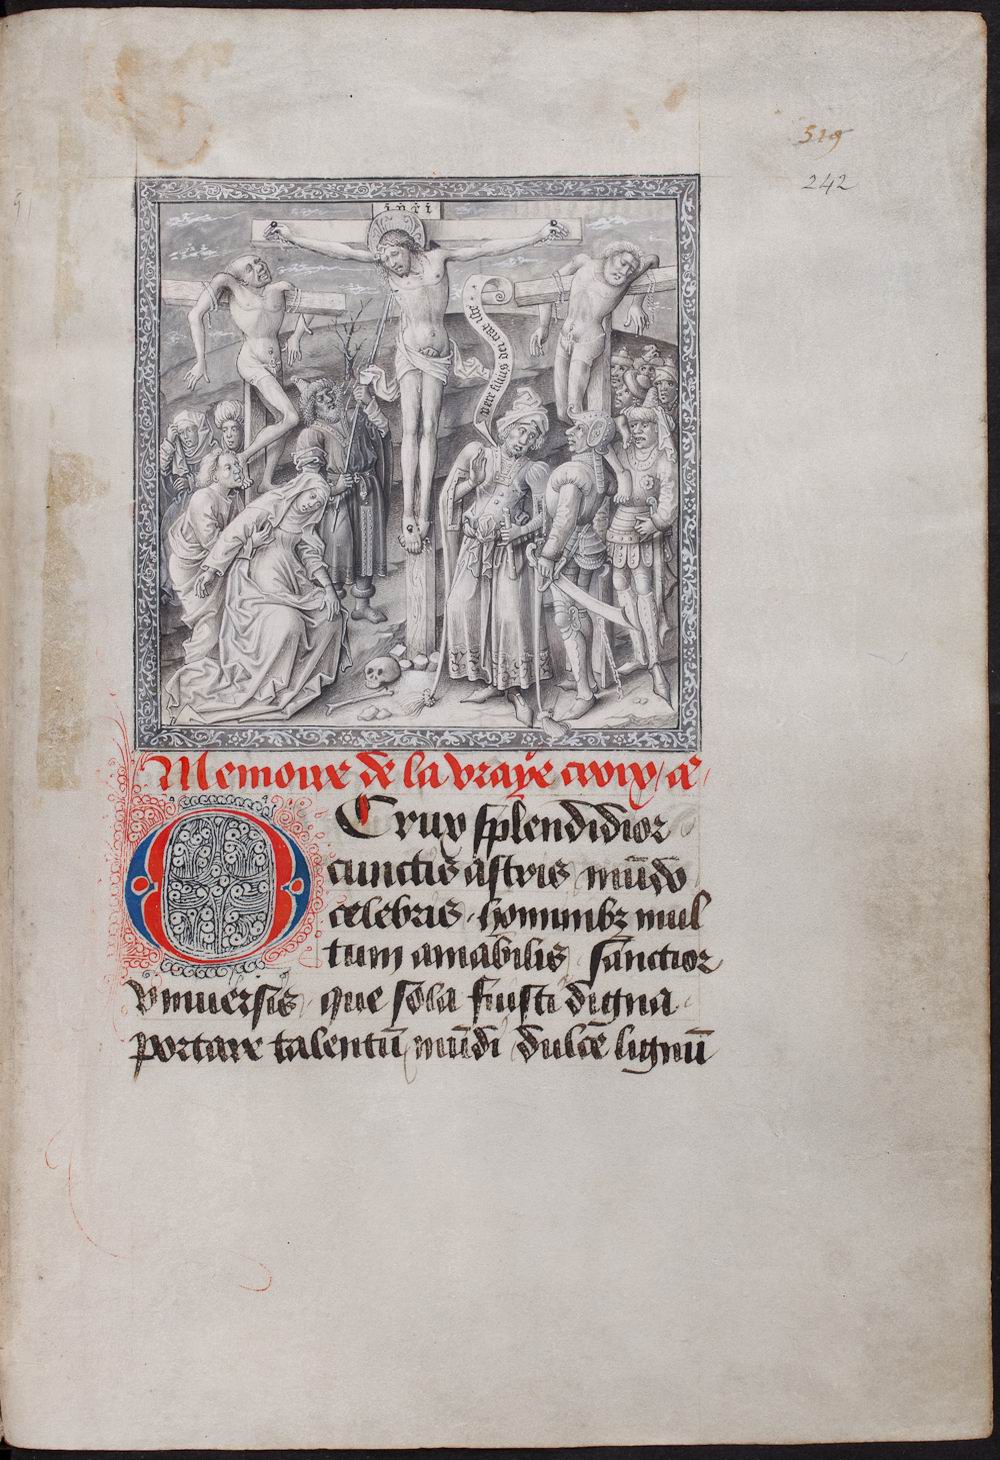 519
242
inri
vere filius dei erat iste
Memoire de la vraye croix, ā
O Crux splendidior
cunctis astris mūdo
celebris hominibꝫ mul
tum amabilis sanctior
vniuersis que sola fuisti digna
portare talentū mūdi dulcē lignū